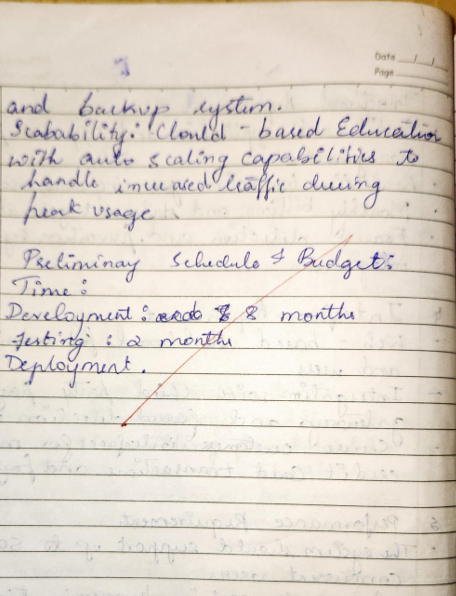 Date / /
Page
and backup system.
Scabability: Clould - based Education
with auto scaling capabilities to
handle increased traffic during
peak usage.
Preliminay Schedule & Budget:
Time:
Development: 8 months
Testing : 2 months
Deployment.